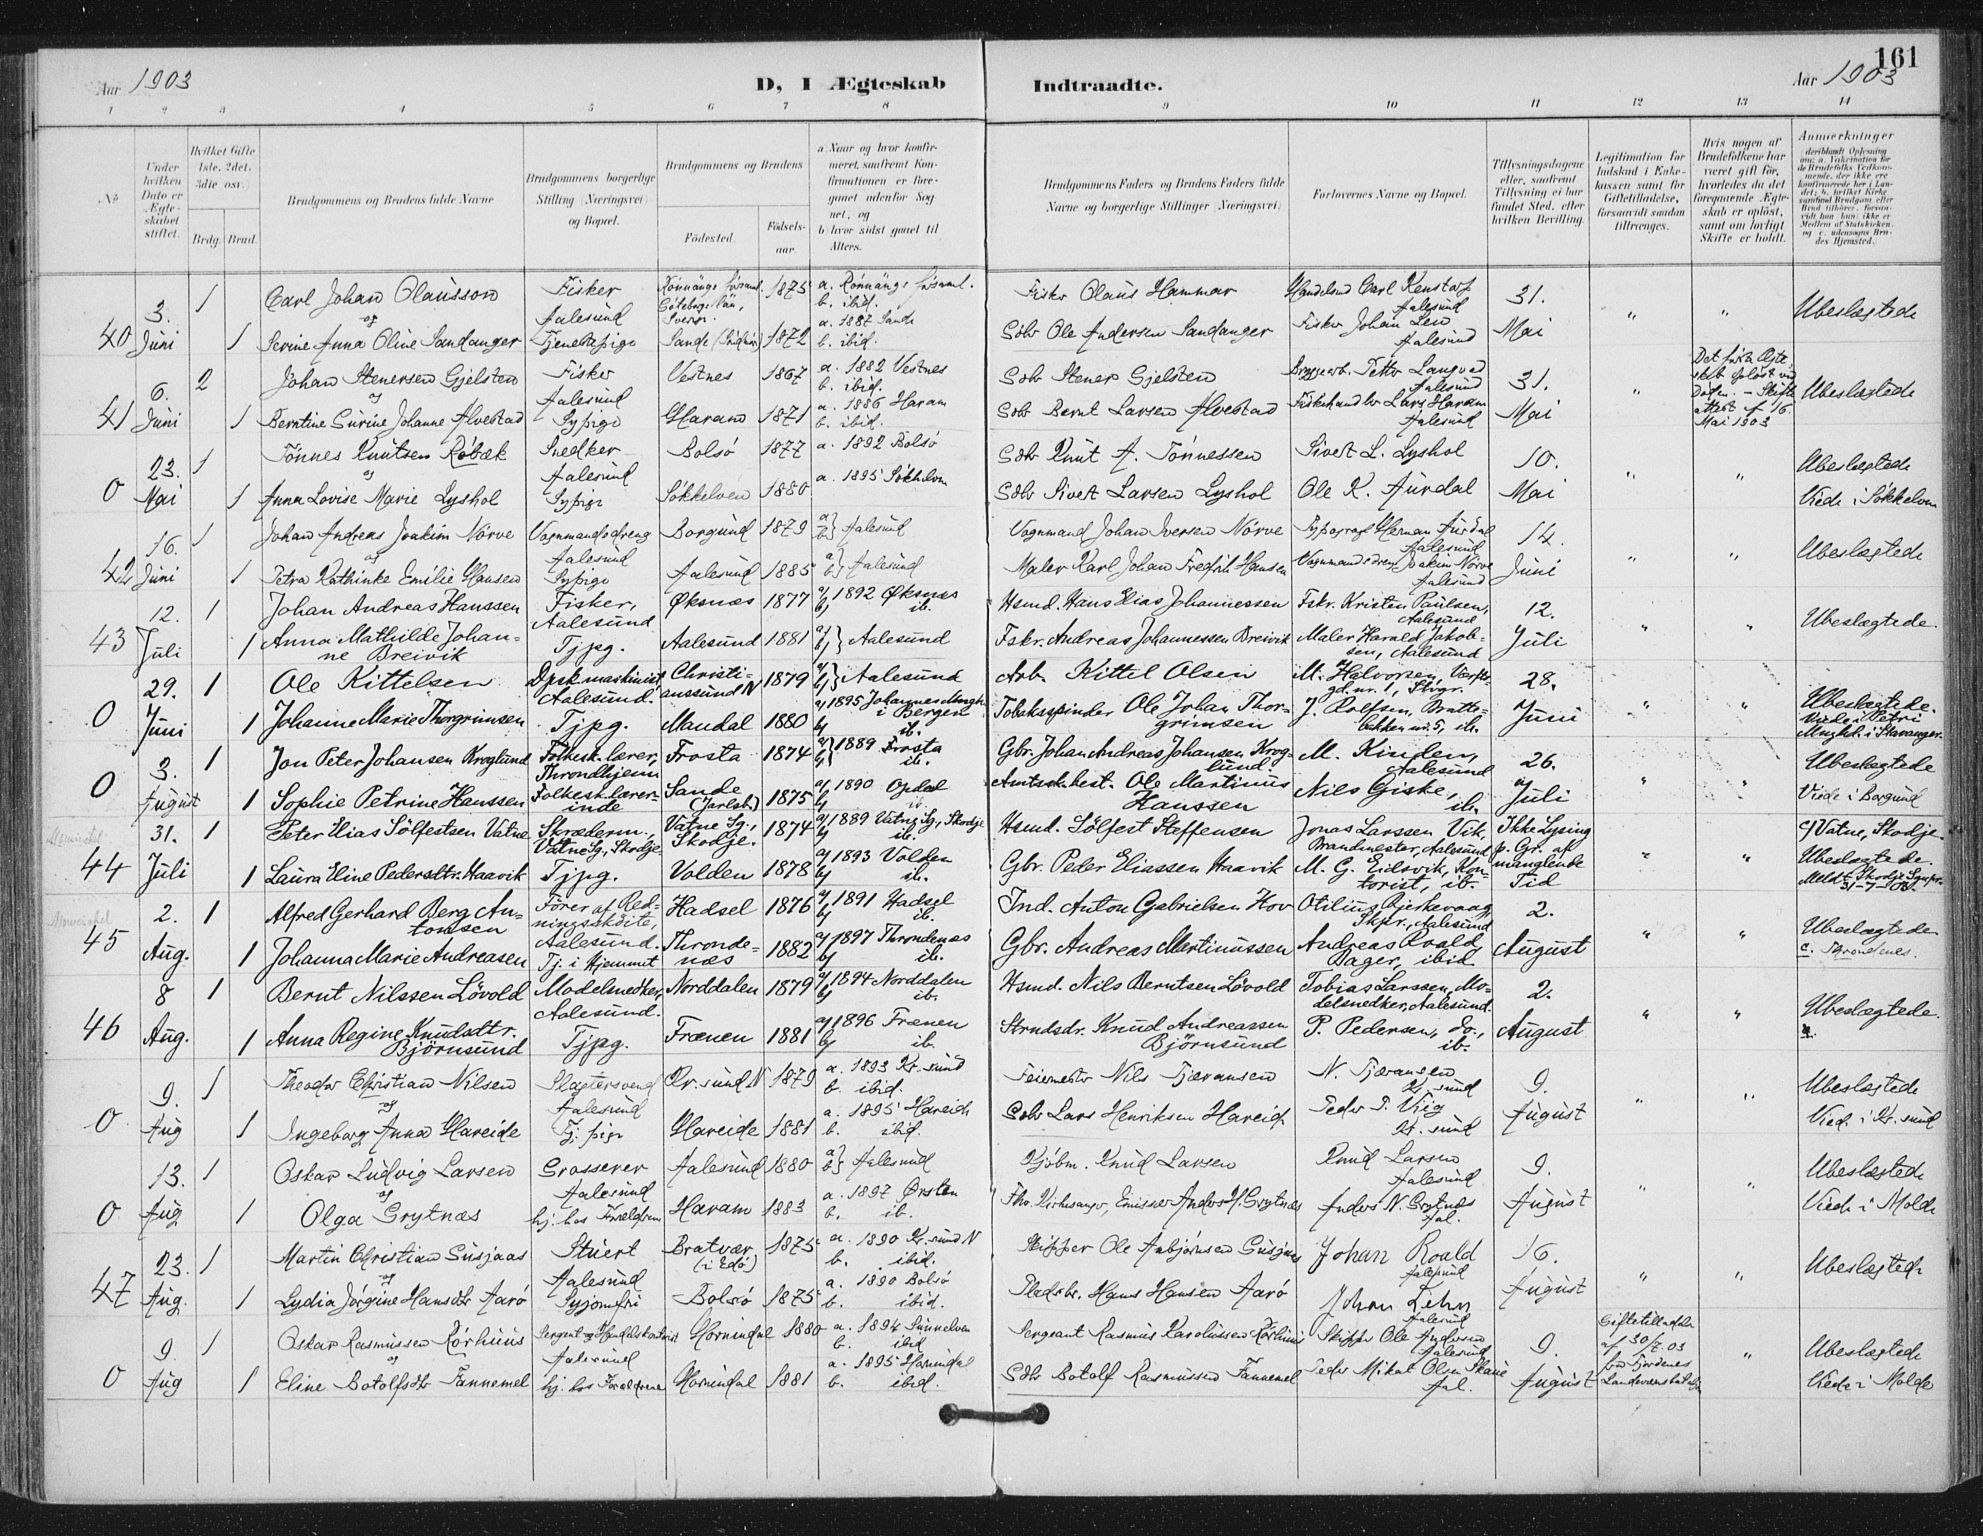 161
Aar 1903
D, I Ægteskab Indtraadte.
Aar 1903
1 2 3 4 5 6 7 8 9 10 11 12 13 14
No
Under hvilken Dato er Ægteskabet stiftet.
Hvilket Gifte 1ste, 2det, 3die osv.
Brdg. Brud.
Brudgommens og Brudens fulde Navne
Brudgommens borgerlige Stilling (Næringsvei) og Bopæl.
Brudgommens og Brudens
Fødested. Fødselsaar.
a Naar og hvor konfirmeret, saafremt Konfirmationen er foregaaet udenfor Sognet, og
b hvor sidst gaaet til Alters.
Brudgommens Faders og Brudens Faders fulde Navne og borgerlige Stillinger (Næringsvei)
Forlovernes Navne og Bopæl.
Tillysningsdagene eller, saafremt Tillysning ei har fundet Sted, efter hvilken Bevilling.
Legitimation for Indskud i Enkekassen samt for Giftetilladelse, forsaavidt saadan tiltrænges.
Hvis nogen af Brudefolkene har været gift før, hvorledes da det foregaaende Ægteskab er opløst, samt om lovligt Skifte er holdt.
Anmærkninger
40 3. Juni 1 Carl Johan Olausson Fisker Aalesund Rönnängs församl. Göteborgs län, Sverge. 1875 a. Rönnängs församl. b. ibid. Fisker Olaus Hammar Handelsmd Carl Kenstorp Aalesund 31. Mai " " Ubeslægtede
og
1 Serine Anna Oline Sandanger Tjenestepige Sande (Søndmør) 1872 a. 1887 Sande b. ibid. Gdbr Ole Andersen Sandanger Fisker Johan Leo Aalesund
41 6. Juni 2 Johan Stenersen Gjelsten Fisker Aalesund Vestnes 1867 a. 1882 Vestnes b. ibid. Gdbr Stener Gjelsten Bryggearb. Petter Langva Aalesund 31. Mai " Det første Ægteskab opløst ved Døden. - Skifteattest af 16 Mai 1903 Ubeslægtede
og
1 Berntine Surine Johanne Alvestad Sypige Haram 1871 a. 1886 Haram b. ibid. Gdbr Bernt Larsen Alvestad Fiskehandler Lars Haram Aalesund
0 23. Mai 1 Tönnes Knutsen Röbæk Snedker Aalesund Bolsö 1877 a. 1892 Bolsö Gdbr Knut A. Tönnessen Sivert L. Lyshol 10. Mai " " Ubeslægtede
og
1 Anna Lovise Marie Lyshol Sypige Sökkelven 1880 a. 1895 Sökkelven Gdbr Sivert Larsen Lyshol Ole K. Aurdal Viede i Sökkelven
42 16. Juni 1 Johan Andreas Joakim Nörve Vognmandsdreng Aalesund Borgund 1879 a b} Aalesund Vognmand Johan Iversen Nörve Typograf Herman Aurdal Aalesund 14. Juni " " Ubeslægtede
og
1 Petra Kathinke Emilie Hansen Sypige Aalesund 1885 a b} Aalesund Maler Karl Johan Fredrik Hansen Vognmandsdreng Joakim Nörve Aalesund
43 12. Juli 1 Johan Andreas Hanssen Fisker, Aalesund Øksnæs 1877 a/ 1892 Øksnæs b/ ib. Hsmd. Hans Elias Johannessen Fskr. Kristen Paulsen, Aalesund 12. Juli " " Ubeslægtede.
1 Anna Mathilde Johanne Breivik Tjpg. Aalesund 1881 a/ b/} Aalesund Fskr. Andreas Johannessen Breivik Maler Harald Jakobsen, Aalesund
0 29. Juni 1 Ole Kittelsen Dpsk.maskinist, Aalesund. Christianssund N 1879 a/ b/} Aalesund Arb. Kittel Olsen M. Halvorsen, Værftsgd. nr. 1, Stvgr. 28. Juni " " Ubeslægtede.
1 Johanne Marie Thorgrimsen Tjpg. Mandal 1880 a/ 1895 Johannes Mngh. i Bergen b/ ib. Tobaksspinder Ole Johan Thorgrimsen J. Rolfsen, Brattebakken nr. 5, ib. Viede i Petri Mnghd. i Stavanger.
0 3. August 1 Jon Peter Johansen Kroglund Folkesk.lærer, Throndhjem Frosta 1874 a/ 1889 Frosta b/ ib. Gbr. Johan Andreas Johansen Kroglund M. Kinden, Aalesund 26. Juli " " Ubeslægtede
1 Sophie Petrine Hanssen Folkesk.lærerinde Sande (Jarlsb.) 1875 a/ 1890 Opdal b/ ib. Amtssk.best. Ole Martinus Hanssen Nils Giske, ib. Viede i Borgund
44 31. Juli 1 Peter Elias Sölfestsen Vatne Skrædderm., Vatne Sg., Skodje. Vatne Sg., Skodje. 1874 a/ 1889 Vatne Sg., Skodje b/ ib. Hsmd. Sölfest Steffensen Jonas Larssen Vik, Brandmester, Aalesund Ikke Lysing p. Gr. af manglende Tid " " c/ Vatne, Skodje. Ubeslægtede.
1 Laura Eline Pedersdtr. Haavik Tjpg. Volden 1878 a/ 1893 Volden b/ ib. Gbr. Peder Eliassen Haavik M. G. Eidsvik, Kontorist, ib.
45 2. Aug. 1 Alfred Gerhard Berg Antonsen Förer af Redningsskøite, Aalesund. Hadsel 1876 a/ 1891 Hadsel b/ ib. Ind. Anton Gabrielsen Hov Otilius Bjerkevaag Skpr., Aalesund 2. August " " Ubeslægtede
1 Johanna Marie Andreasen Tj. i Hjemmet Throndenæs 1882 a/ 1897 Throndenæs b/ ib. Gbr. Andreas Martinussen Andreas Roald, Bager, ibid c. Throndenes.
46 8 Aug. 1 Bernt Nilssen Lövold Modelsnedker, Aalesund. Norddalen 1879 a/ 1894 Norddalen b/ ib. Hsmd. Nils Berntsen Lövold Tobias Larssen, Modelsnedker, Aalesund. 2. August " " Ubeslægtede.
1 Anna Regine Knudsdtr. Björnsund Tjpg. Frænen 1881 a/ 1896 Frænen b/ ib. Strndsdr. Knud Andreassen Björnsund P. Pedersen, do., ib.
0 9. Aug 1 Theodor Christian Nilsen Slagtersvend Aalesund Kr.sund N 1879 a. 1893 Kr.sund b. ibid. Feiermester Nils Tjæransen N. Tjæransen Kr.sund 9. August " " Ubeslægtede
og
1 Ingeborg Anna Hareide Tj. pige Hareide 1881 a. 1895 Hareide b. ibid. Gdbr Lars Henriksen Hareide Peder P. Viig Kr.sund Vied. i Kr.sund
0 13. Aug 1 Oskar Ludvig Larsen Grosserer Aalesund Aalesund 1880 a b} Aalesund Kjøbm. Knud Larsen Knud Larsen Aalesund 9. August " " Ubeslægtede
og
1 Olga Grytnæs hj. hos Forældrene Haram 1883 a. 1897 Ørsten b. ib. Fhv. Kirkesanger, Emissær Anders N. Grytnæs Anders N. Grytnæs Aal. Viede i Molde
47 23. Aug. 1 Martin Christian Gusjaas Stuert Aalesund Bratvær (i Edö) 1875 a. 1890 Kr.sund N b. ibid. Skipper Ole Asbjørnsen Gusjaas Johan Roald Aalesund 16. August " " Ubeslægtede
og
1 Lydia Jörgine Hansdtr Aarö Syjomfru Bolsö 1875 a. 1890 Bolsö b. ibid. Pladsbr. Hans Hansen Aarö Johan Lehn Aalesund
0 9. Aug 1 Oskar Rasmussen Rörhuus Sergent og Handelskontorist Aalesund Hornindal 1880 a. 1894 Sunnelven b. ibid Sergeant Rasmus Karolussen Rörhuus Skipper Ole Andersen Aalesund 9. August Giftetilladelse af 30/7 03 fra Fjordenes Landværnsbataljon " Ubeslægtede
og
1 Eline Botolfsdtr Fannemel hj. hos Forældrene Hornindal 1881 a. 1895 Hornindal b. ibid. Gdbr Botolf Rasmussen Fannemel Peder Mikal Olsen Skaue Aal. Viede i Molde